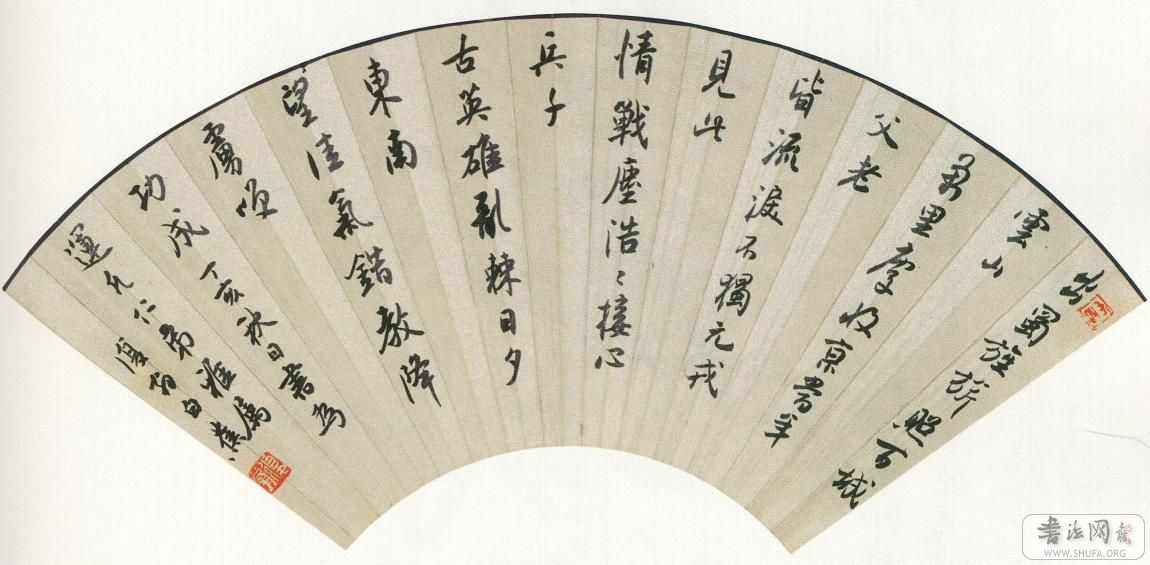 出蜀旌旂照百城
雲山
萬里慶收京當年
父老
皆流淚不獨元戎
見此
情戰塵浩〻接心
兵千
古英雄亂棘日夕
東南
望佳氣錯教降
虜
功成丁亥秋日書為
運仁弟雅屬
復翁白蕉
書法网
WWW.SHUFA.ORG